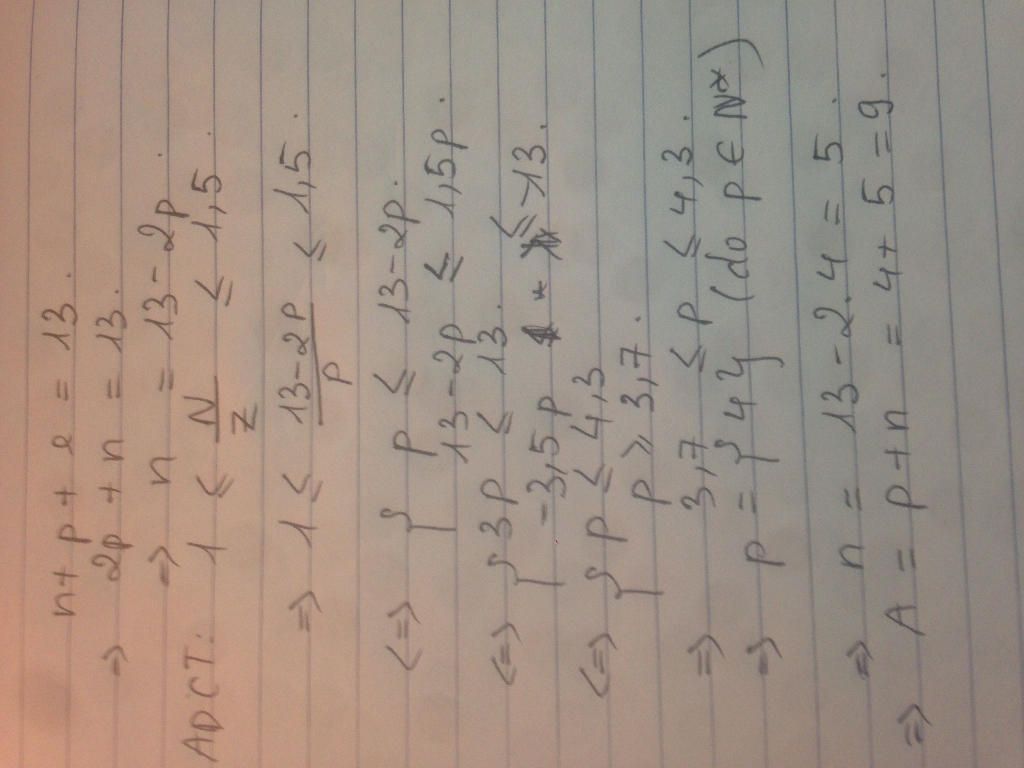 n + p + e = 13.
=> 2p + n = 13.
=> n = 13 - 2p.
ADCT: 1 ≤ N/Z ≤ 1,5.
=> 1 ≤ (13 - 2P)/P ≤ 1,5.
<=> { P ≤ 13 - 2p.
13 - 2p ≤ 1,5p.
<=> { 3p ≤ 13.
-3,5p ≤ -13.
<=> { p ≤ 4,3
p ≥ 3,7.
=> 3,7 ≤ p ≤ 4,3.
=> p = {4} (do p ∈ N*)
=> n = 13 - 2.4 = 5.
=> A = p + n = 4 + 5 = 9.